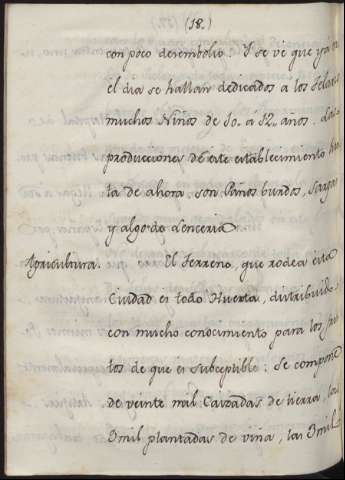 (18.)
con poco desembolso: Y se ve que ya en
el dia se hallan dedicados a los Telares
muchos Niños de 10. a 12. anos. Las
producciones de este establecimiento has
ta de ahora, son Paños burdos, Sargas
y algo de Lenceria
Agricultura. El Terreno, que rodea esta
Ciudad es todo Huerta, distribuido
con mucho conocimiento para los fru
tos de que es subceptible: Se compone
de veinte mil Caizadas de tierra, las
3mil plantadas de viña, las 3mil